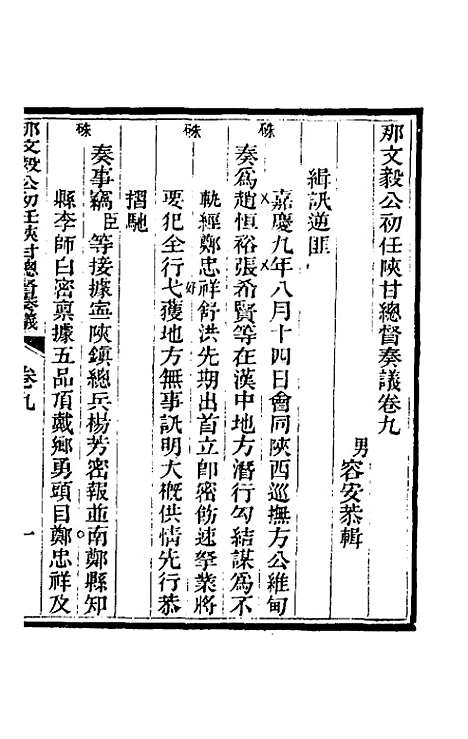 那文毅公初任陝甘總督奏議卷九
男容安恭輯
緝訊逆匪
嘉慶九年八月十四日會同陝西巡撫方公維甸
奏為趙恒裕張希賢等在漢中地方潛行勾結謀為不
軌經鄭忠祥舒洪先期出首立即密飭速拏業將
要犯全行弋獲地方無事訊明大概供情先行恭
摺馳
奏事竊臣等接據寧陝鎮總兵楊芳密報並南鄭縣知
縣李師白密稟據五品頂戴鄉勇頭目鄭忠祥及
那文毅公初任陝甘總督奏議 卷九 一